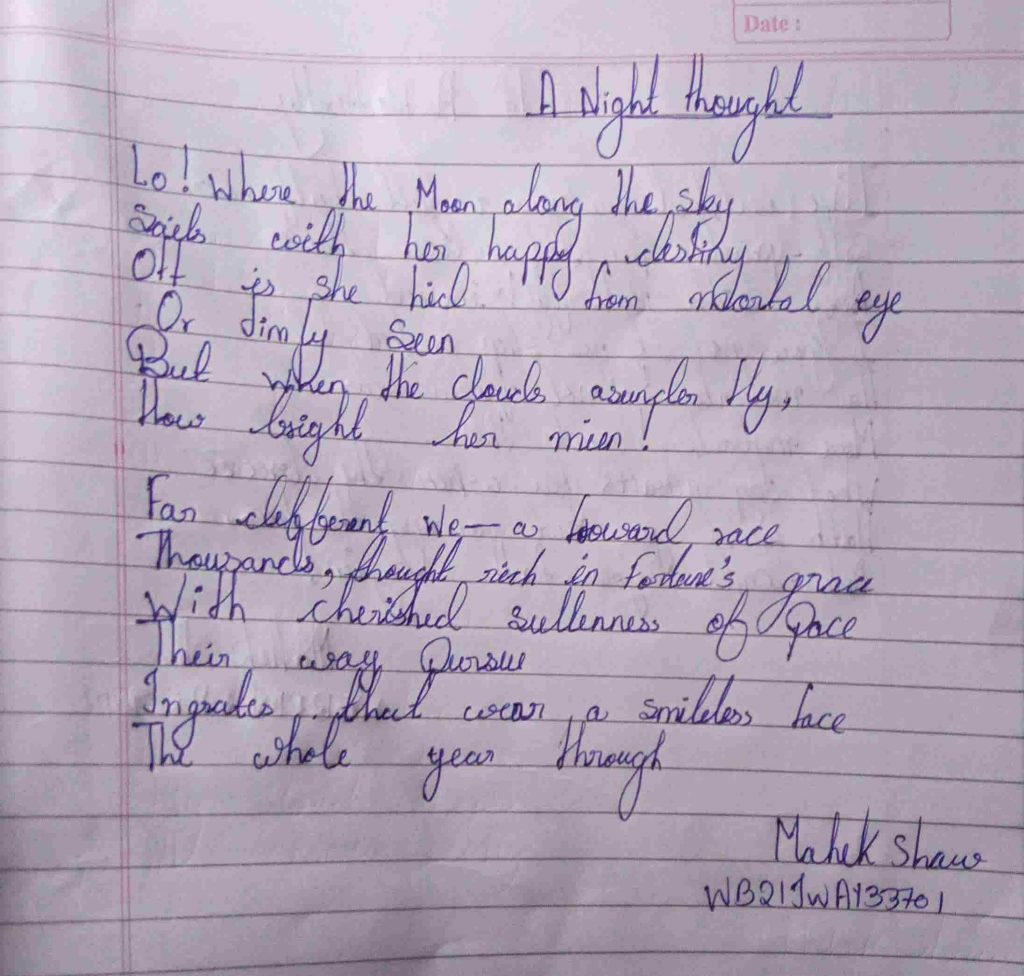 Date :
A Night thought
Lo! Where the Moon along the sky
Sails with her happy destiny,
Oft is she hid from mortal eye
Or dimly seen
But when the clouds asunder fly,
How bright her mien!
Far different we — a foward race
Thousands, thought rich in Fortune's grace
With cherished sullenness of pace
Their way Pursue
Ingrates that wear a smileless face
The whole year through
Mahek Shaw
WB21JWA133701